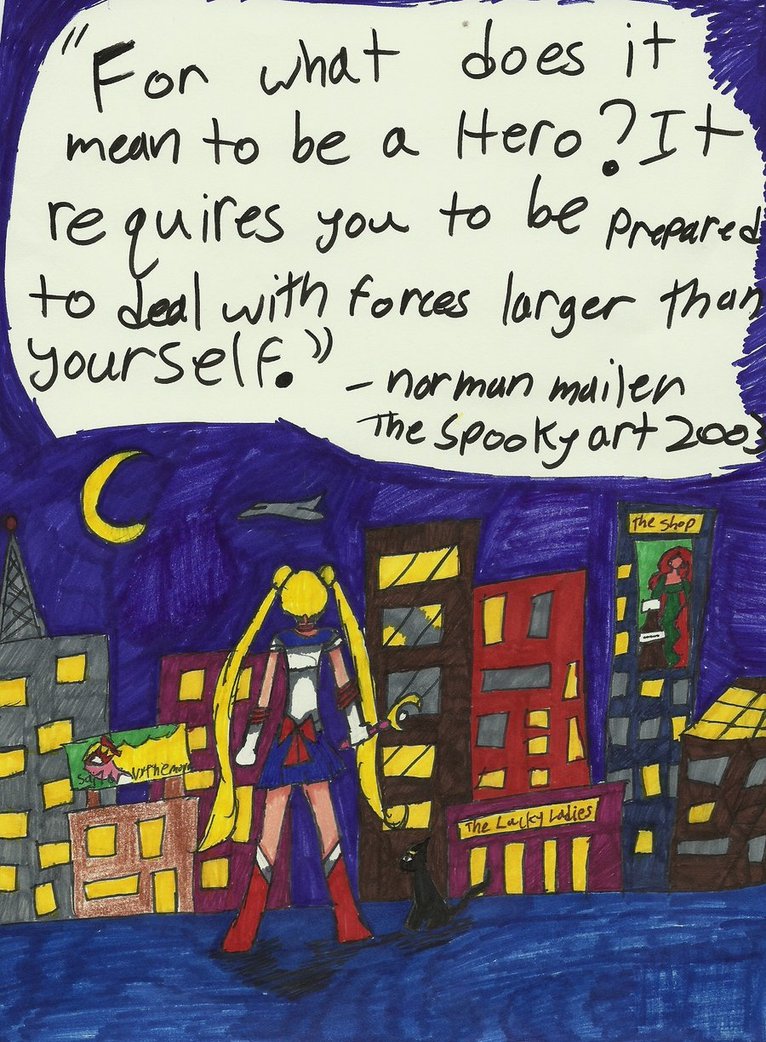 "For what does it
mean to be a Hero? It
requires you to be prepared
to deal with forces larger than
yourself."
- norman mailer
The Spooky art 2003
The Shop
The Lucky Ladies